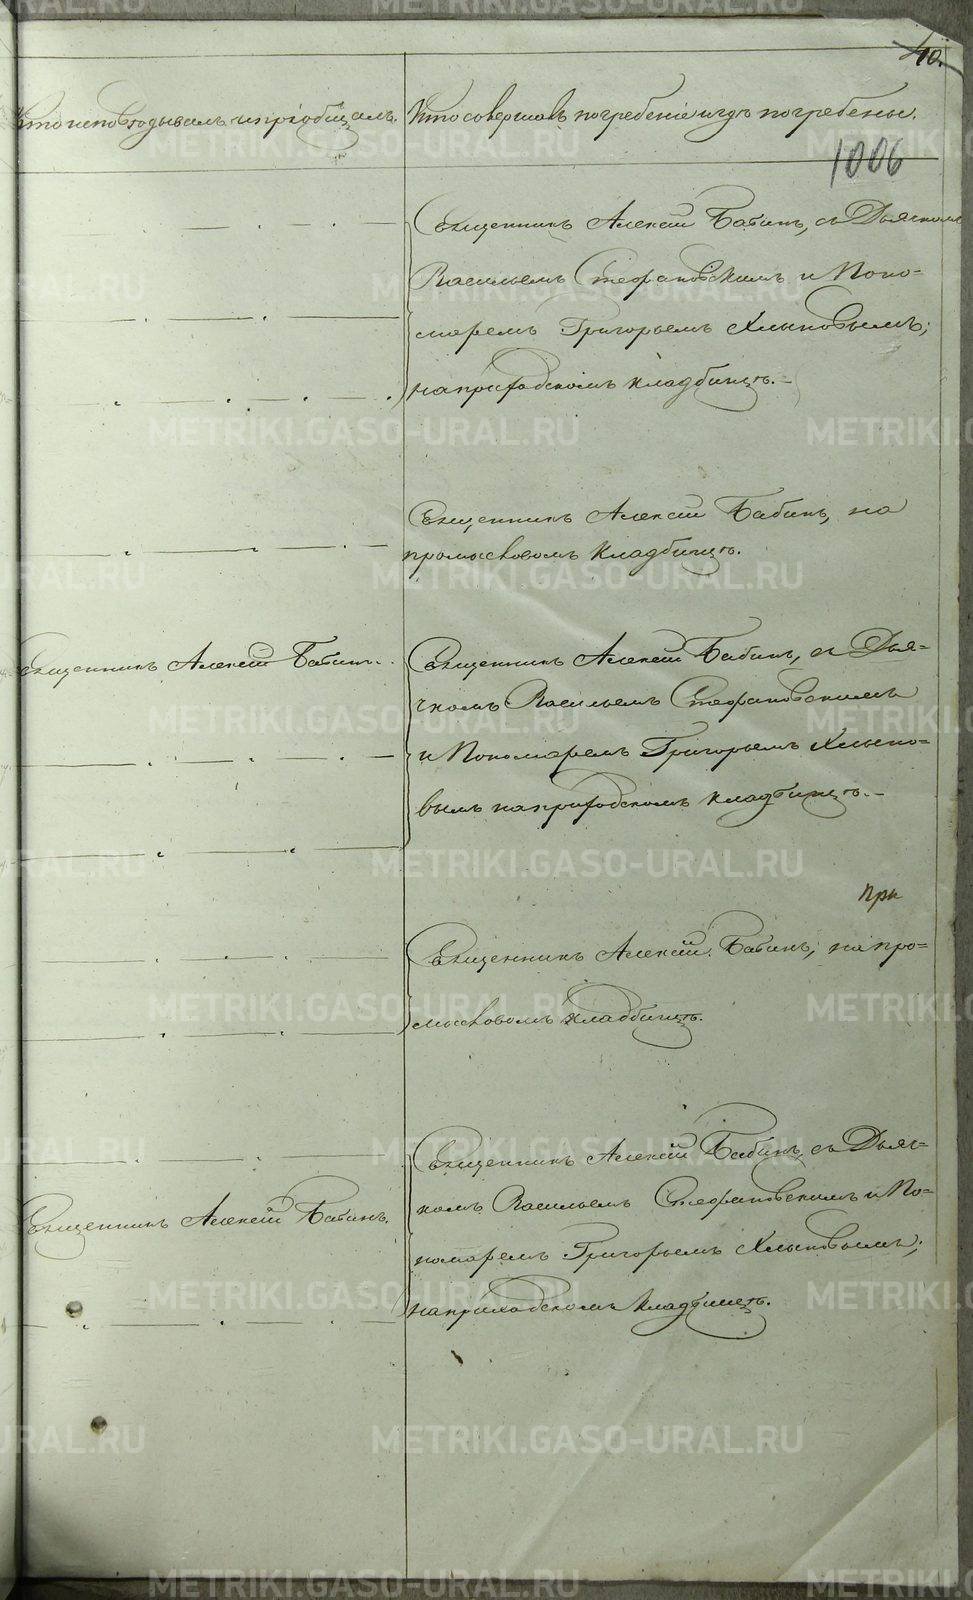 40.
Кто исповѣдывалъ и пріобщалъ.
Кто совершалъ погребеніе и гдѣ погребены.
1006
Священникъ Алексій Бабинъ, съ Дьячкомъ
Васильемъ Стефановскимъ и Поно=
маремъ Григорьемъ Хлыновымъ;
на приходскомъ кладбищѣ.
Священникъ Алексій Бабинъ, на
промысловомъ кладбищѣ.
Священникъ Алексій Бабинъ.
Священникъ Алексій Бабинъ, съ Дья=
чкомъ Васильемъ Стефановскимъ
и Пономаремъ Григорьемъ Хлыно=
вымъ на приходскомъ кладбищѣ.
при
Священникъ Алексій Бабинъ, на про=
мысловомъ кладбищѣ.
Священникъ Алексій Бабинъ, съ Дьяч=
комъ Васильемъ Стефановскимъ и По=
номаремъ Григорьемъ Хлыновымъ;
на приходскомъ кладбищѣ.
Священникъ Алексій Бабинъ.
METRIKI.GASO-URAL.RU